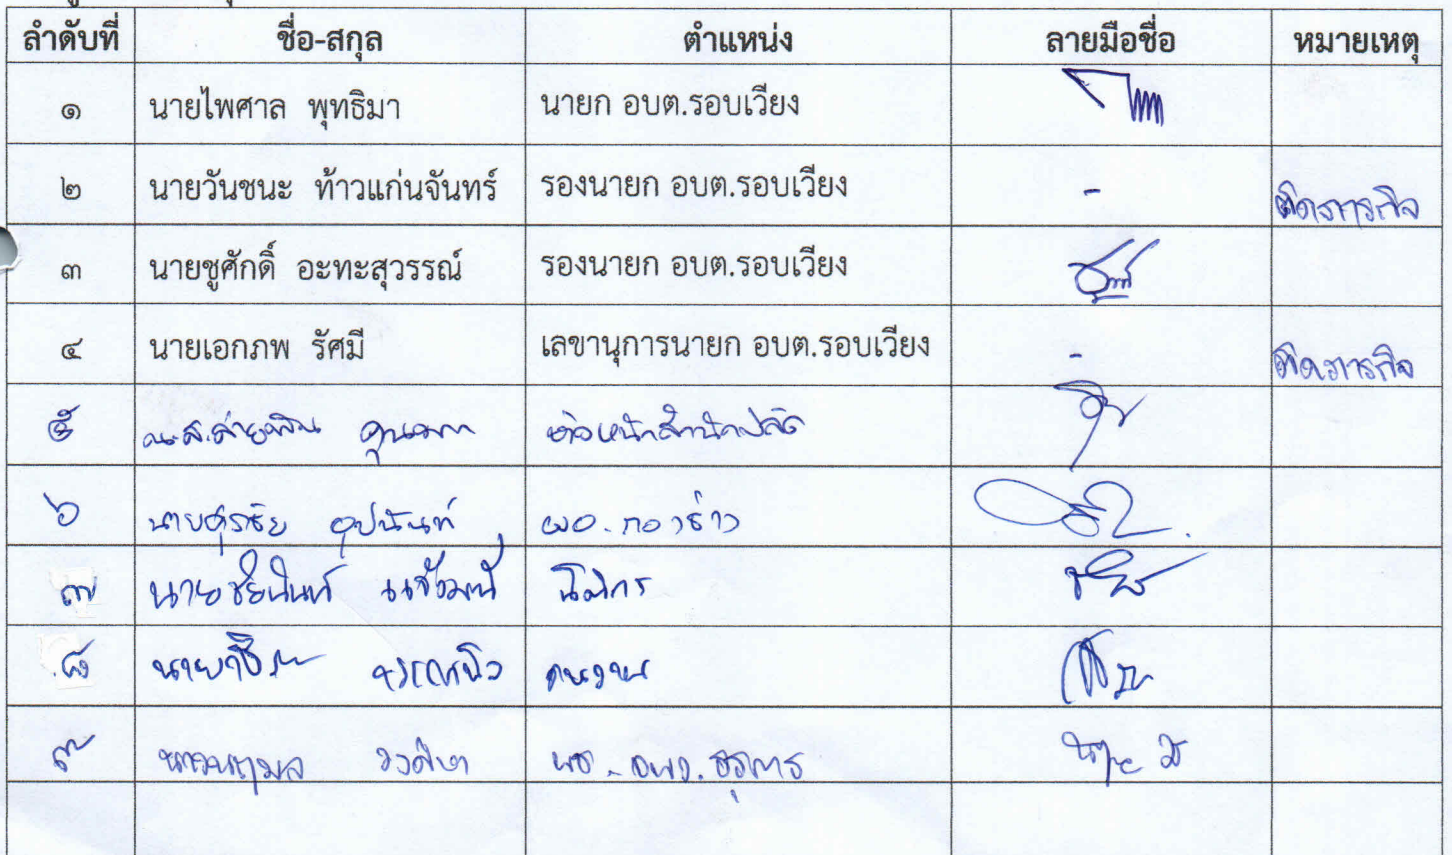 ลำดับที่ ชื่อ-สกุล ตำแหน่ง ลายมือชื่อ หมายเหตุ
๑ นายไพศาล พุทธิมา นายก อบต.รอบเวียง
๒ นายวันชนะ ท้าวแก่นจันทร์ รองนายก อบต.รอบเวียง - ติดภารกิจ
๓ นายชูศักดิ์ อะทะสุวรรณ์ รองนายก อบต.รอบเวียง
๔ นายเอกภพ รัศมี เลขานุการนายก อบต.รอบเวียง - ติดภารกิจ
๕ น.ส.สายพิน หัวหน้าสำนักปลัด
๖ นายสุรชัย อุปนันท์ ผอ.กองช่าง
๗ นายชัยนันท์ นิติกร
๘ คนงาน
๙ นางนฤมล ผช.จพง.ธุรการ